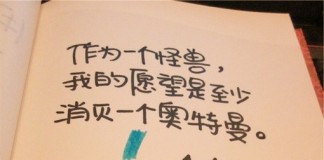 作为一个怪兽，
我的愿望是至少
消灭一个奥特曼。